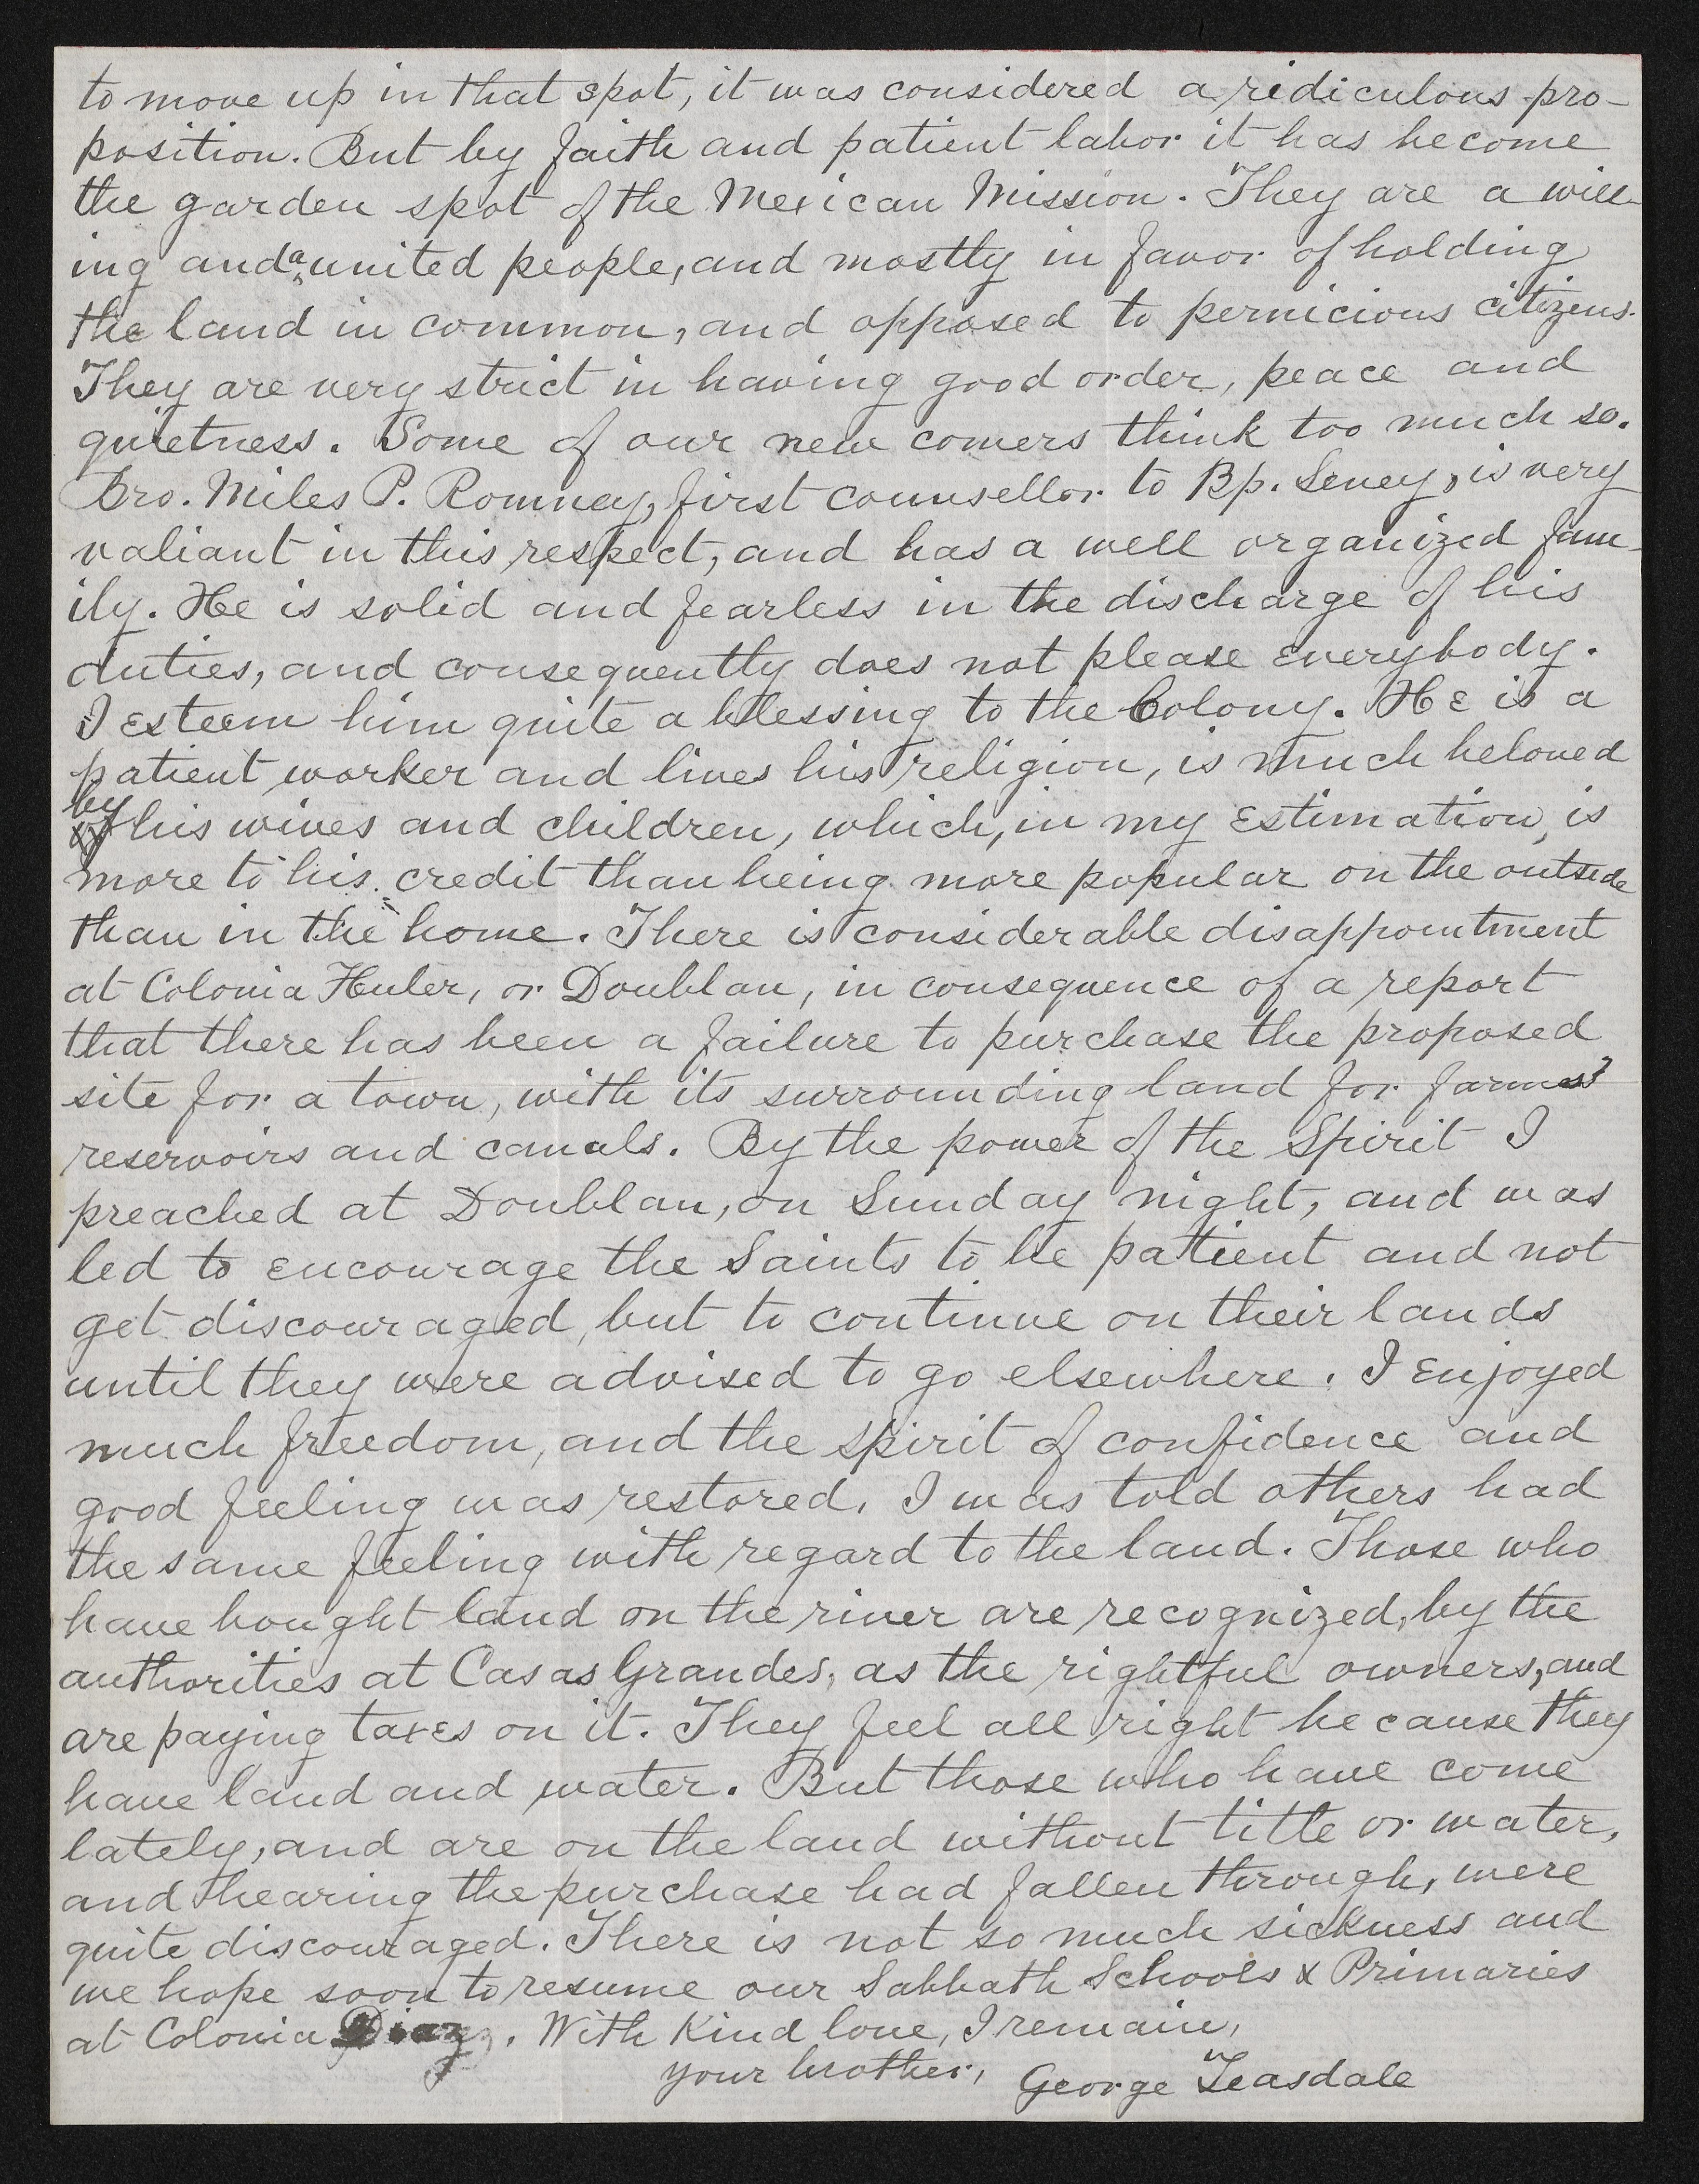 to move up in that spot, it was considered a ridiculous pro-
position. But by faith and patient labor it has become
the garden spot of the Mexican Mission. They are a will-
ing and a united people, and mostly in favor of holding
the land in common, and opposed to pernicious citizens.
They are very strict in having good order, peace and
quietness. Some of our new comers think too much so.
Bro. Miles P. Romney, first counsellor to Bp. Sevey, is very
valiant in this respect, and has a well organized fam-
ily. He is solid and fearless in the discharge of his
duties, and consequently does not please everybody.
I esteem him quite a blessing to the Colony. He is a
patient worker and lives his religion, is much beloved
by
of his wives and children, which, in my estimation, is
more to his credit than being more popular on the outside
than in the home. There is considerable disappointment
at Colonia Huler, or Doublan, in consequence of a report
that there has been a failure to purchase the proposed
site for a town, with its surrounding land for farms
reservoirs and canals. By the power of the Spirit I
preached at Doublan, on Sunday night, and was
led to encourage the Saints to be patient and not
get discouraged, but to continue on their lands
until they were advised to go elsewhere. I enjoyed
much freedom, and the spirit of confidence and
good feeling was restored. I was told others had
the same feeling with regard to the land. Those who
have bought land on the river are recognized, by the
authorities at Casas Grandes, as the rightful owners, and
are paying taxes on it. They feel all right because they
have land and water. But those who have come
lately, and are on the land without title or water,
and hearing the purchase had fallen through, were
quite discouraged. There is not so much sickness and
we hope soon to resume our Sabbath Schools & Primaries
at Colonia Diaz. With Kind love, I remain,
your brother, George Teasdale